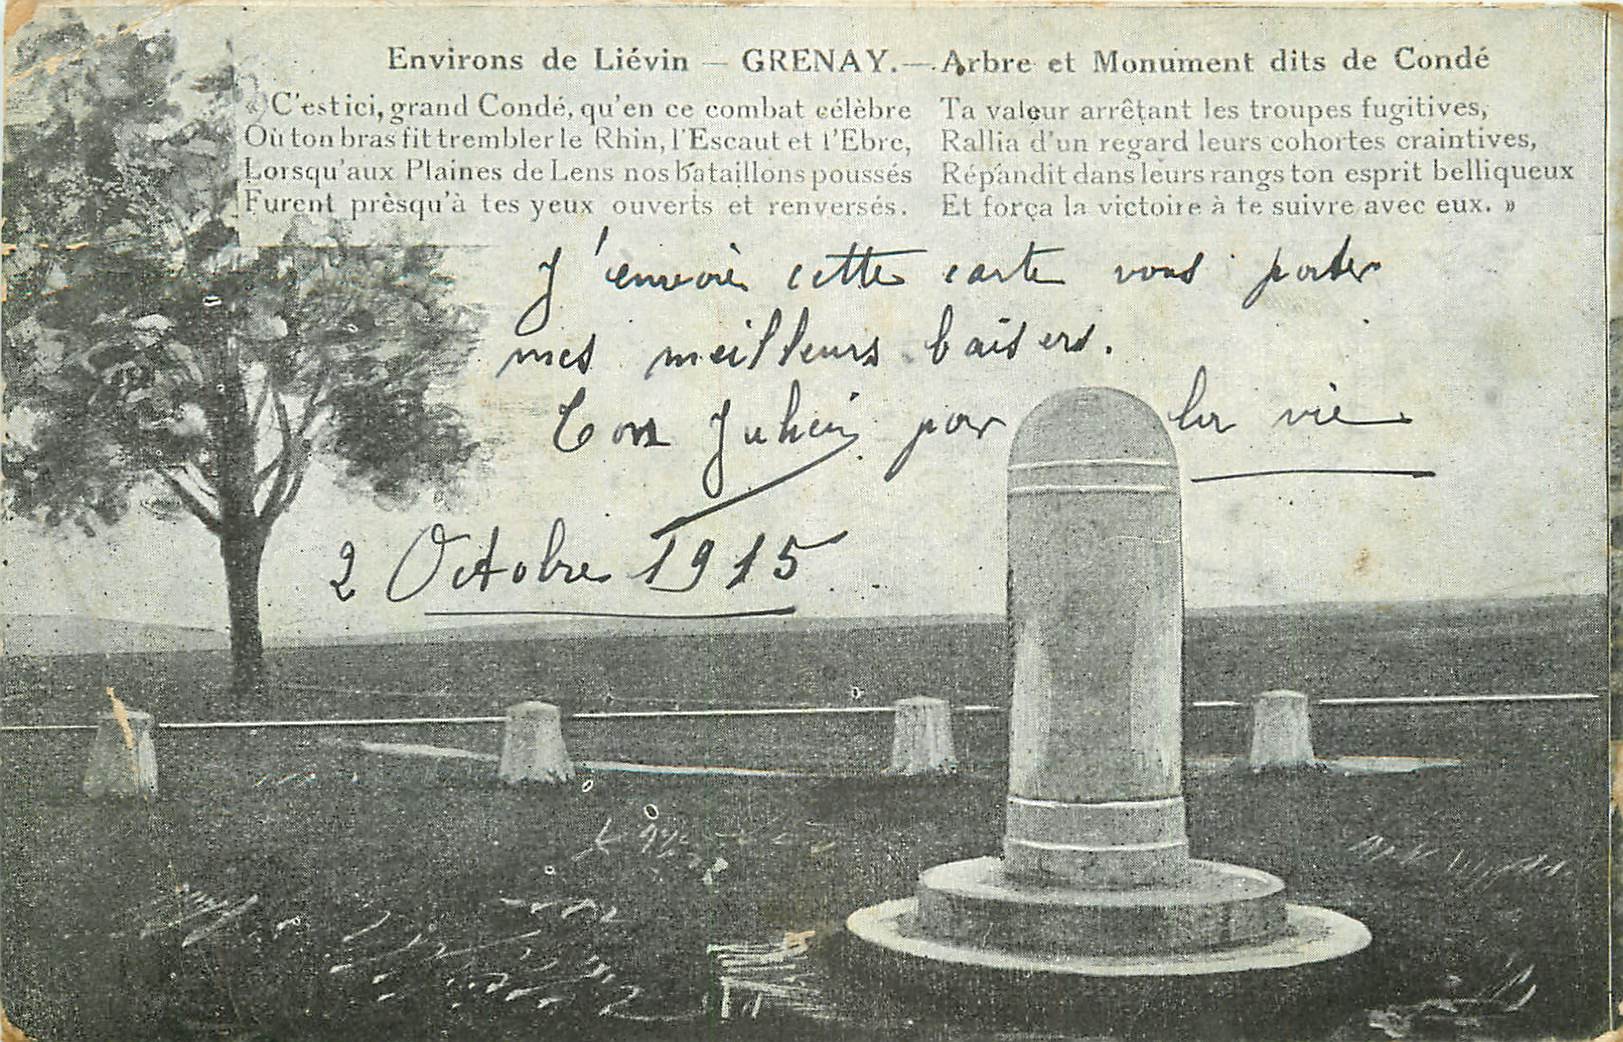 Environs de Liévin — GRENAY. — Arbre et Monument dits de Condé
« C'est ici, grand Condé, qu'en ce combat célèbre
Où ton bras fit trembler le Rhin, l'Escaut et l'Ebre,
Lorsqu'aux Plaines de Lens nos bataillons poussés
Furent prèsqu'à tes yeux ouverts et renversés.
Ta valeur arrêtant les troupes fugitives,
Rallia d'un regard leurs cohortes craintives,
Répandit dans leurs rangs ton esprit belliqueux
Et força la victoire à te suivre avec eux. »
J'envoie cette carte vous porter
mes meilleurs baisers.
Ton Julien par la vie
2 Octobre 1915